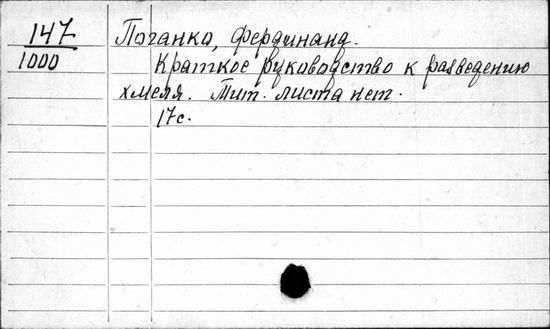 147
1000
Поганко, Фердинанд.
Краткое руководство к разведению
хмеля. Тит. листа нет.
17 с.